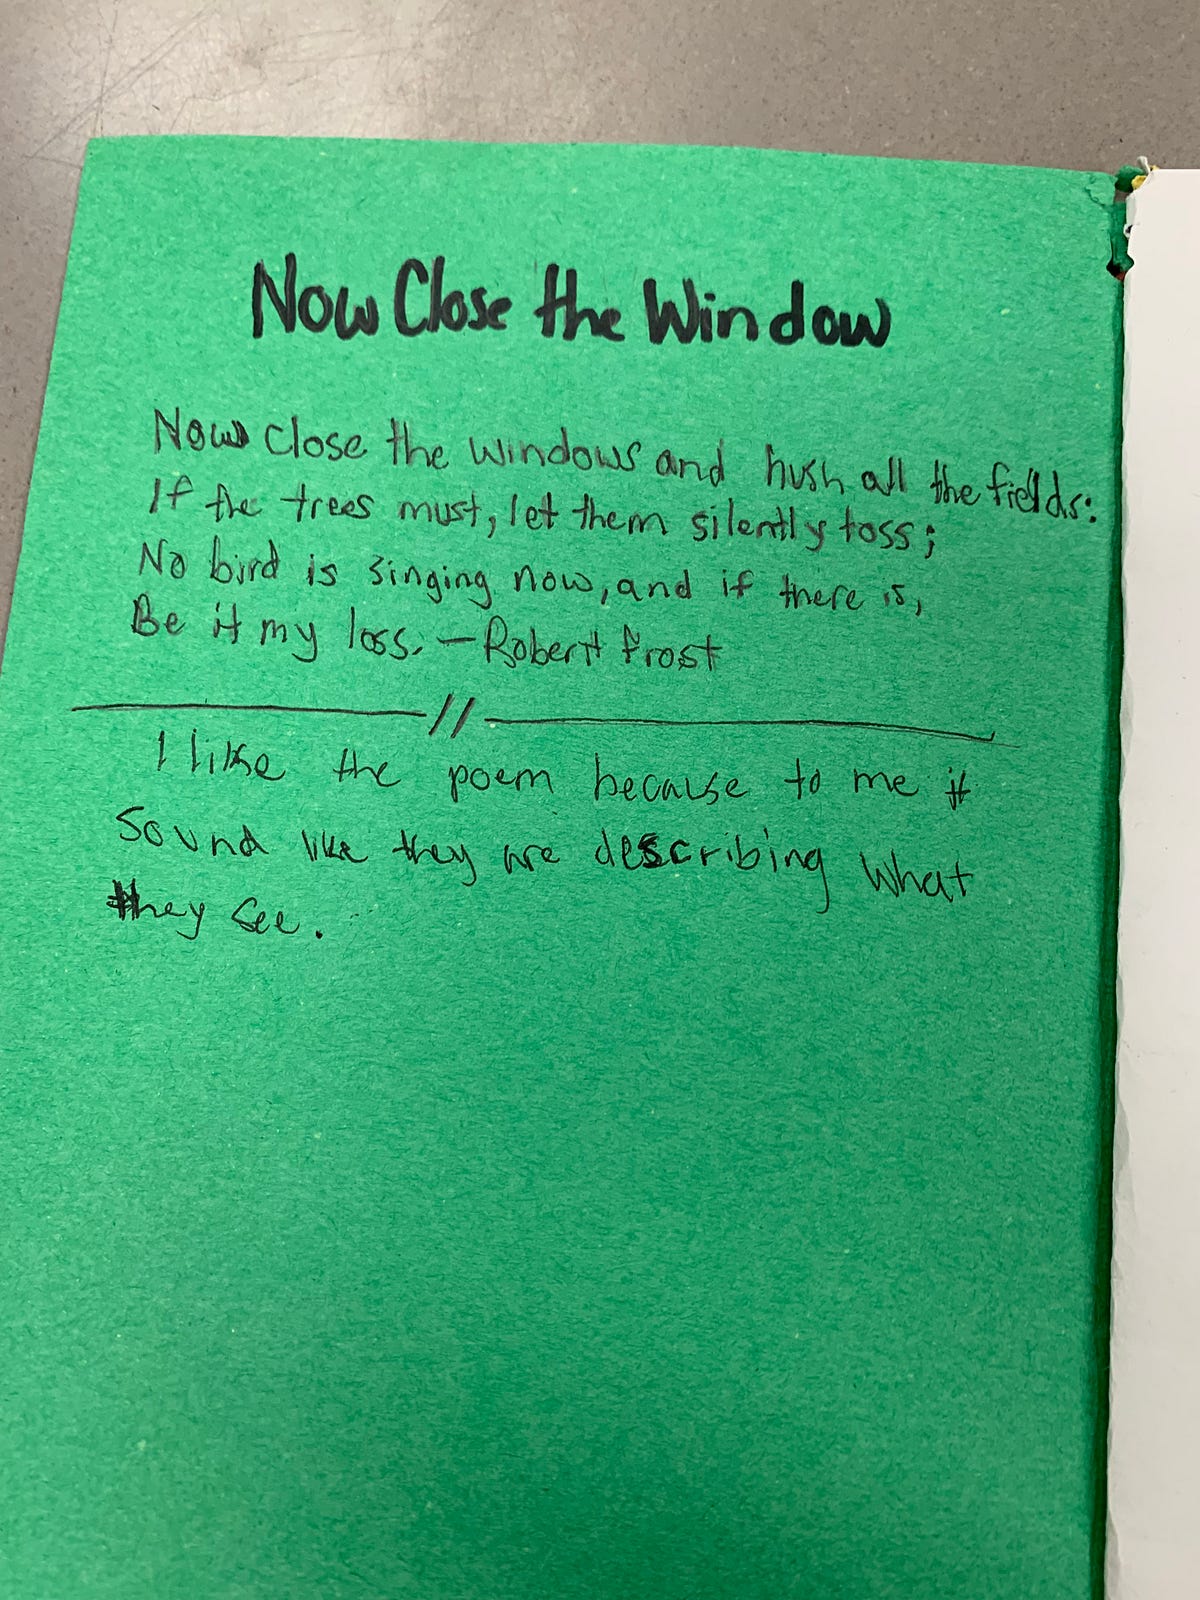 Now Close the Window
Now close the windows and hush all the fields:
If the trees must, let them silently toss;
No bird is singing now, and if there is,
Be it my loss. — Robert Frost
//
I like the poem because to me it
sound like they are describing what
they see.